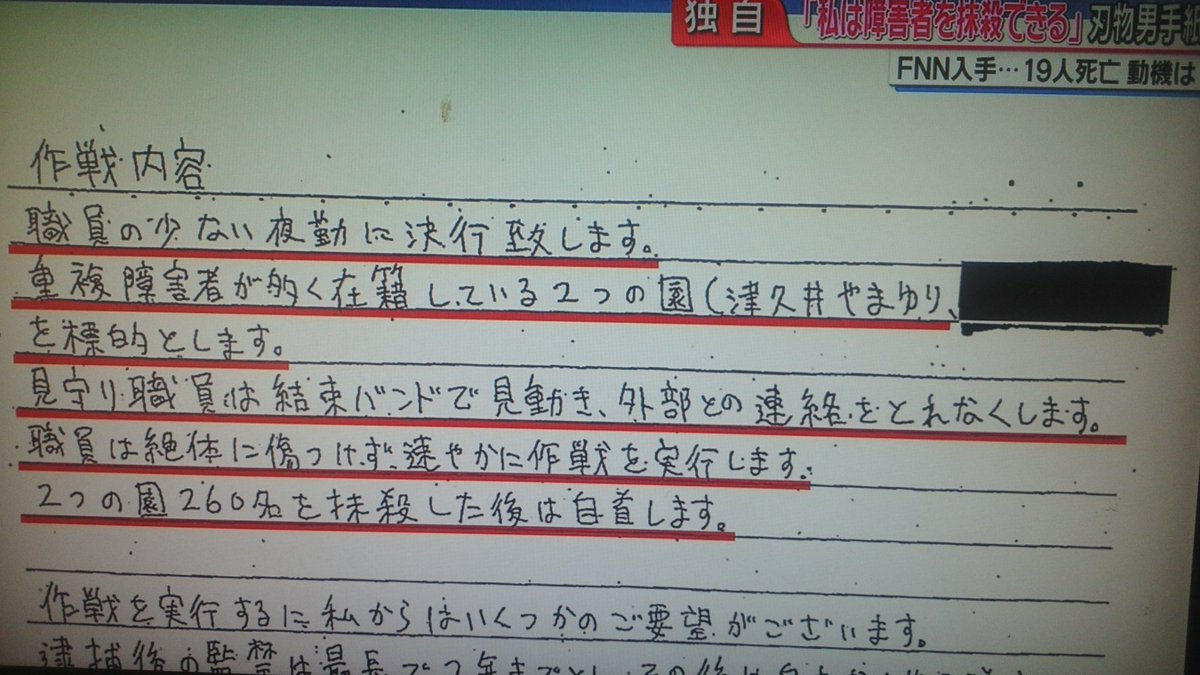 独自
「私は障害者を抹殺できる」刃物男手紙
FNN入手…19人死亡 動機は
作戦内容
職員の少ない夜勤に決行致します。
重複障害者が多く在籍している2つの園(津久井やまゆり、
を標的とします。
見守り職員は結束バンドで見動き、外部との連絡をとれなくします。
職員は絶体に傷つけず速やかに作戦を実行します。
2つの園260名を抹殺した後は自首します。
作戦を実行するに私からはいくつかのご要望がございます。
逮捕後の監禁は最長で2年までとし、その後は自